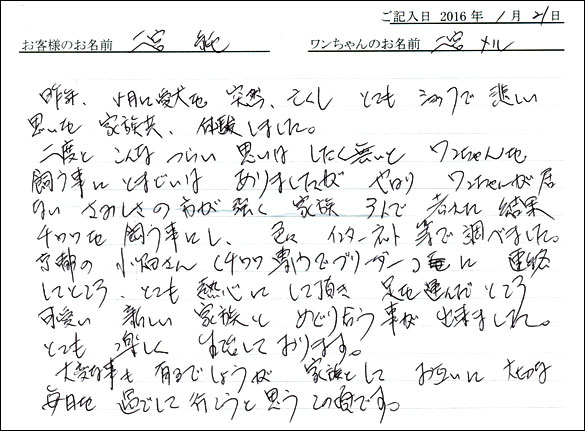 ご記入日 2016年 1月 21日
お客様のお名前 二宮 純 ワンちゃんのお名前 二宮 メル
昨年、5月に愛犬を 突然、亡くし とても ショックで 悲しい
思いを 家族共、体験しました。
二度と こんな つらい 思いは したく無いと ワンちゃんを
飼う事に とまどいは ありましたが やはり ワンちゃんが居
ない さみしさの方が 強く 家族 3人で 考えた 結果
チワワを 飼う事にし、 色々 インターネット 等で調べました。
京都の 小畑さん (チワワ専門でブリーダー) に 連絡
したところ、とても 熱心に して頂き 足を運んだところ
可愛い 新しい 家族と めぐり合う 事が 出来ました。
とても 楽しく 生活しております。
大変な事も 有るでしょうが 家族として お互いに 大切な
毎日を 過ごして 行こうと思う この頃です。